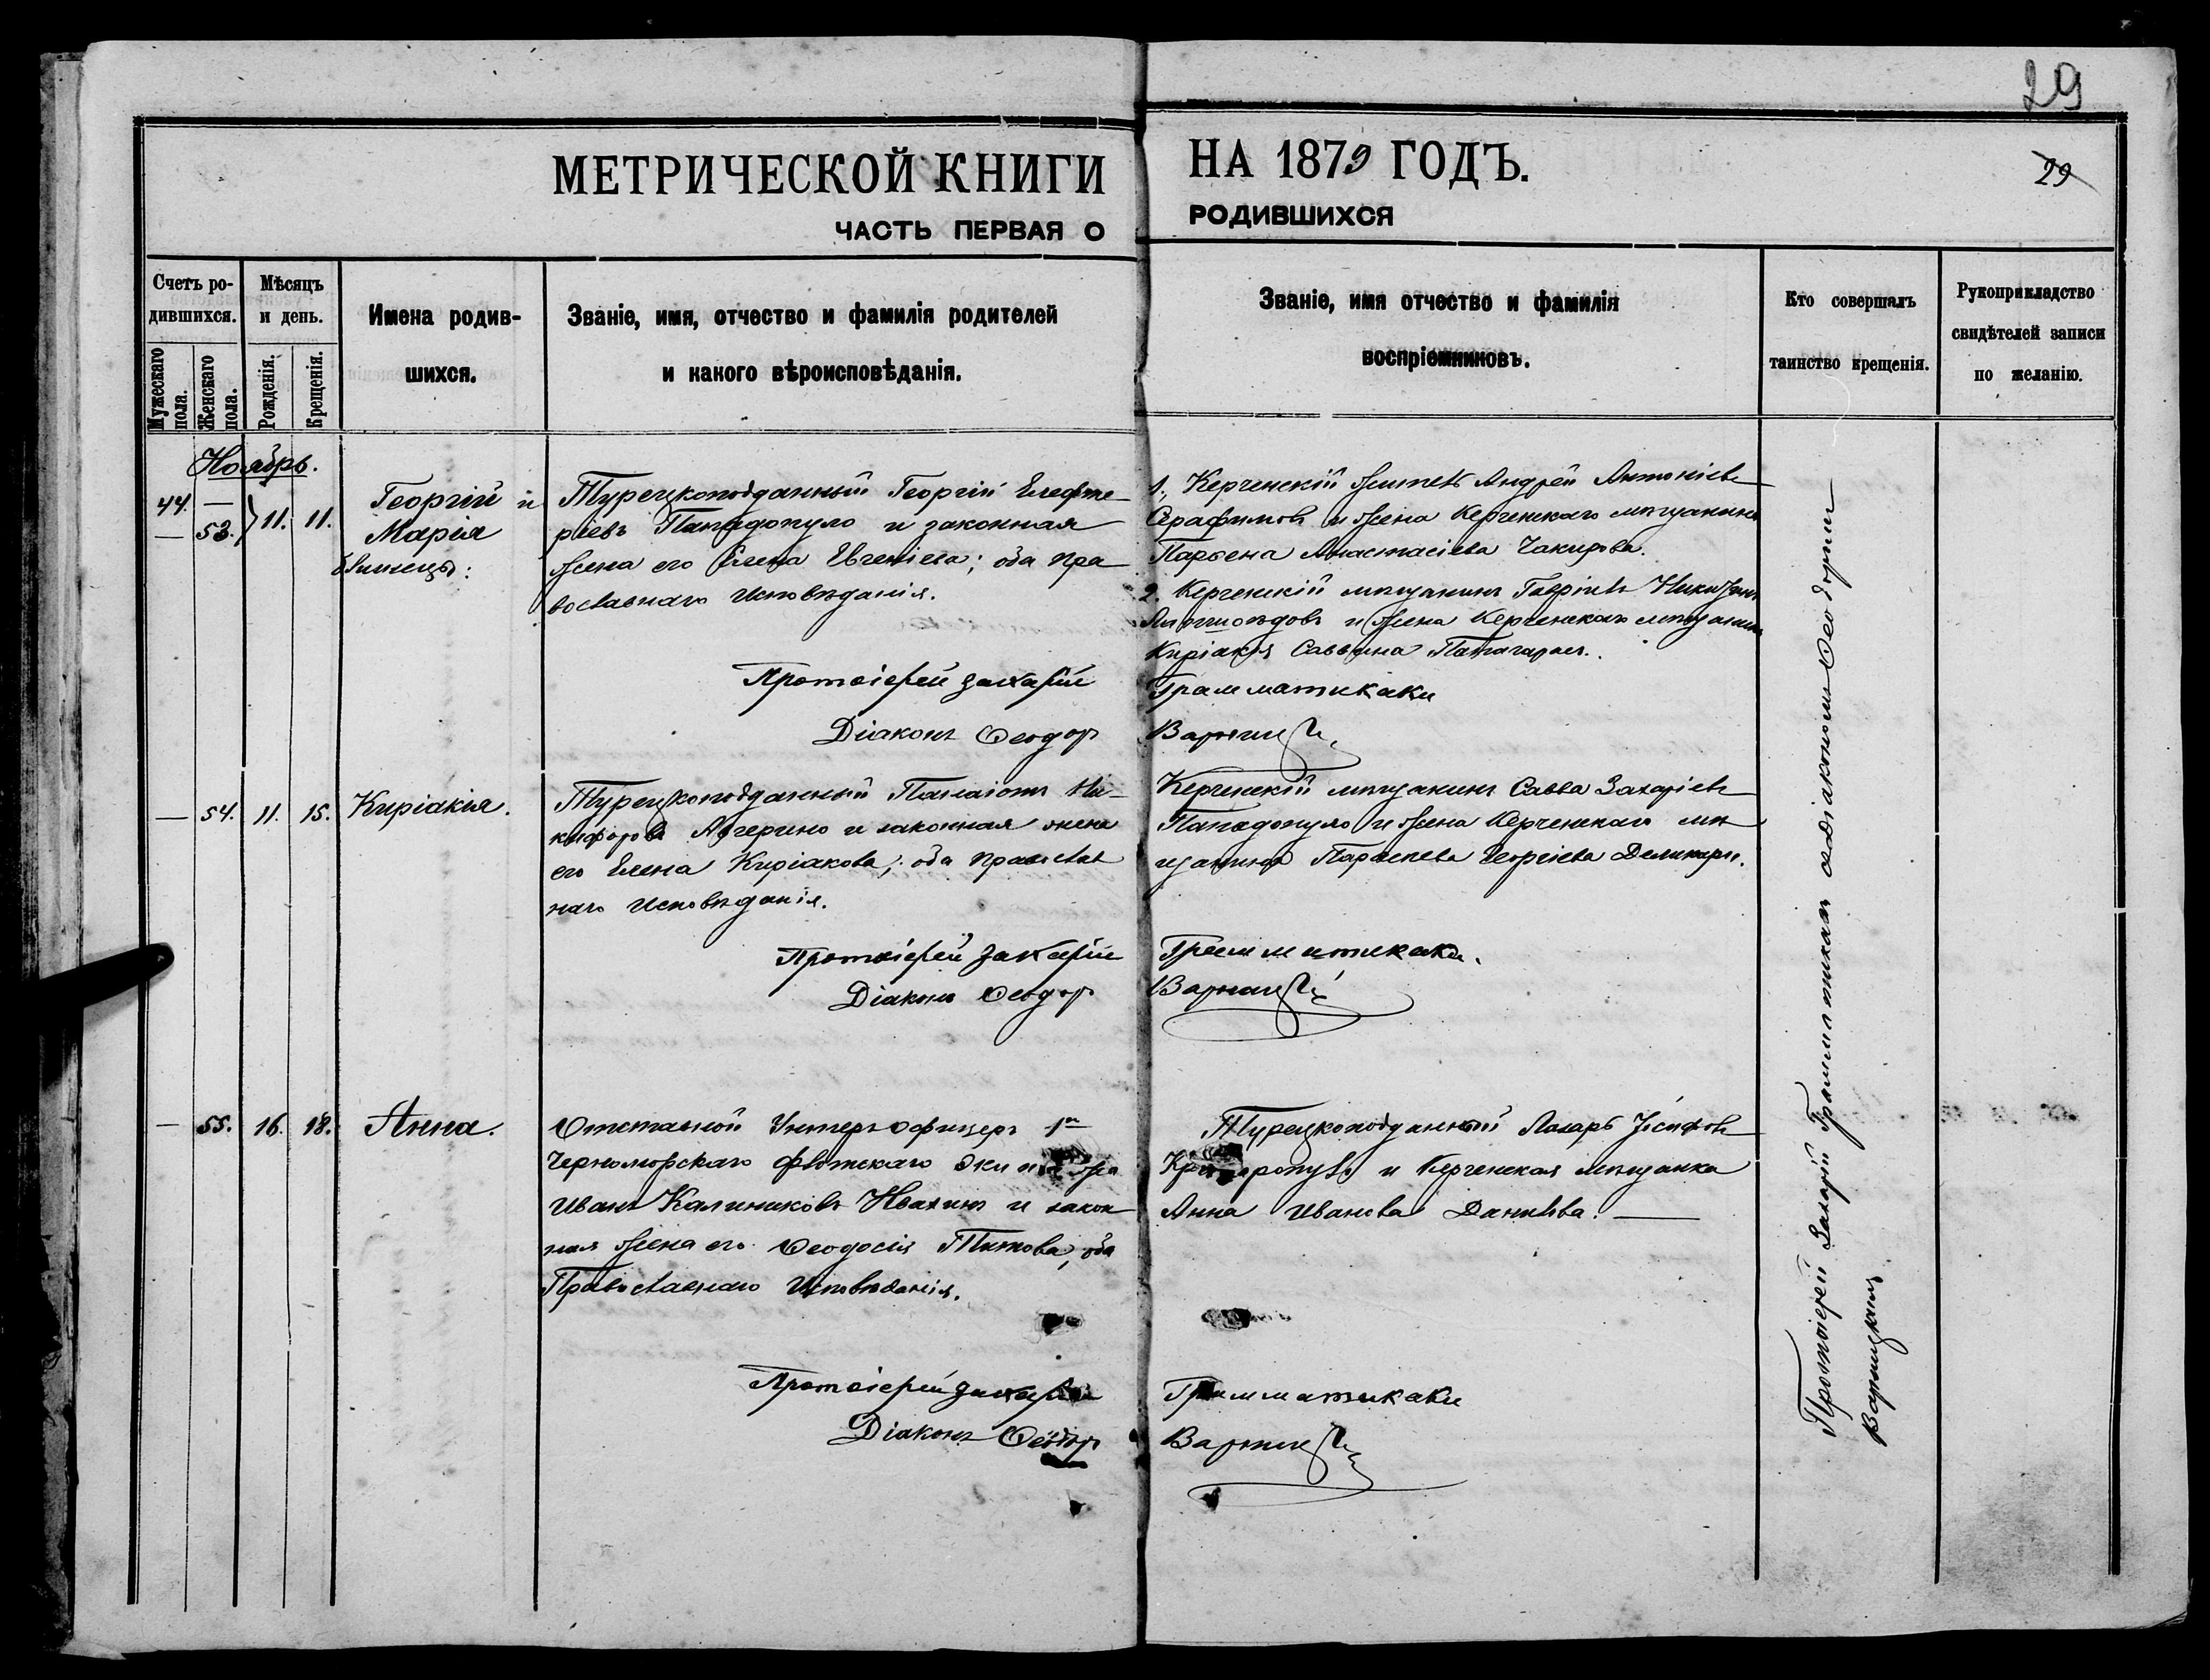 29
МЕТРИЧЕСКОЙ КНИГИ НА 1879 ГОДЪ.
29
ЧАСТЬ ПЕРВАЯ О РОДИВШИХСЯ
Счетъ ро-
дившихся.
Мужескаго пола.
Женскаго пола.
Мѣсяцъ
и день.
Рожденія.
Крещенія.
Имена родив-
шихся.
Званіе, имя, отчество и фамилія родителей
и какого вѣроисповѣданія.
Званіе, имя отчество и фамилія
воспріемниковъ.
Кто совершалъ
таинство крещенія.
Рукоприкладство
свидѣтелей записи
по желанію.
Ноябрь.
44. —
— 53. } 11. 11.
Георгій и
Марія
близнецы:
Турецкоподданный Георгій Елефте-
ріевъ Пападопуло и законная
жена его Елена Евгеніева; оба пра-
вославнаго Исповѣданія.
1., Керченскій житель Андрей Антоніевъ
Серафимовъ и жена Керченскаго мѣщанина
Парѳена Анастасіева Чакирова.
2. Керченскій мѣщанинъ Гавріилъ
и жена Керченскаго мѣщанина
Киріакія Саввина
Протоіерей Захарій Грамматикаки
Діаконъ Ѳеодоръ Варницкій
— 54. 11. 15. Киріакія.
Турецкоподданный Панаіотъ Ни-
кифоровъ Авгерино и законная жена
его Елена Киріакова; оба православ
наго Исповѣданія.
Керченскій мѣщанинъ Савва Захаріевъ
Пападопуло и жена Керченскаго мѣ
щанина Параскева Георгіева
Протоіерей Захарій Грамматикаки.
Діаконъ Ѳеодоръ Варницкій
— 55. 16. 18. Анна.
Отставной Унтеръ-офицеръ 1го
Черноморскаго флотскаго Экипажа
Иванъ Калиниковъ Ивахинъ и закон
ная жена его Ѳеодосія Титова, оба
Православнаго Исповѣданія.
Турецкоподданный Лазарь Іосифовъ
и Керченская мѣщанка
Анна Иванова Данилова. —
Протоіерей Захарій Грамматикаки
Діаконъ Ѳеодоръ Варницкій
Протоіерей Захарій Грамматикаки съ Діакономъ Ѳеодоромъ
Варницкимъ